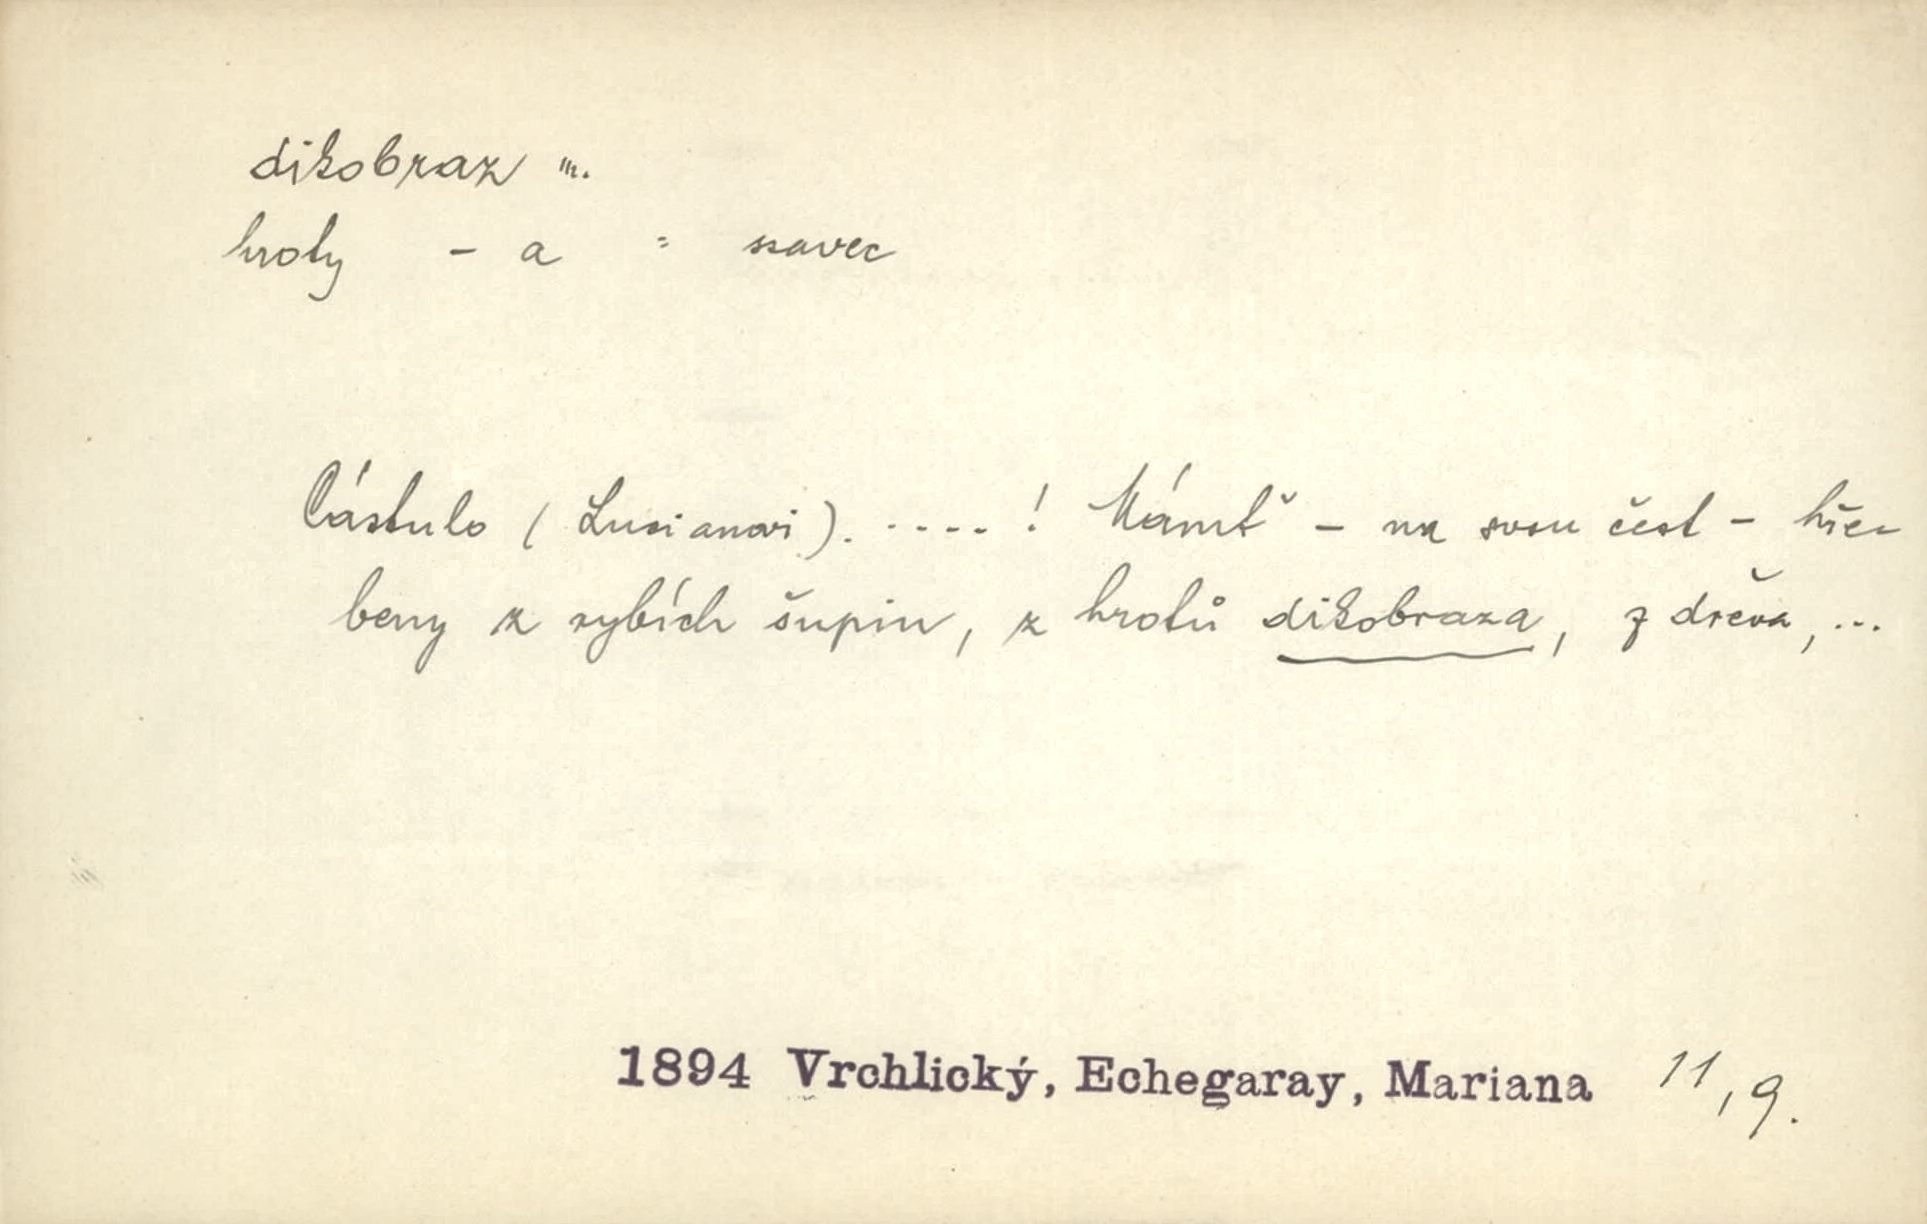 dikobraz m.
hroty – a = ssavec
Cástulo (Lucianovi). ....! Mámť – na svou čest – hře-
beny z rybích šupin, z hrotů dikobraza, z dřeva, ...
1894 Vrchlický, Echegaray, Mariana 11, 9.